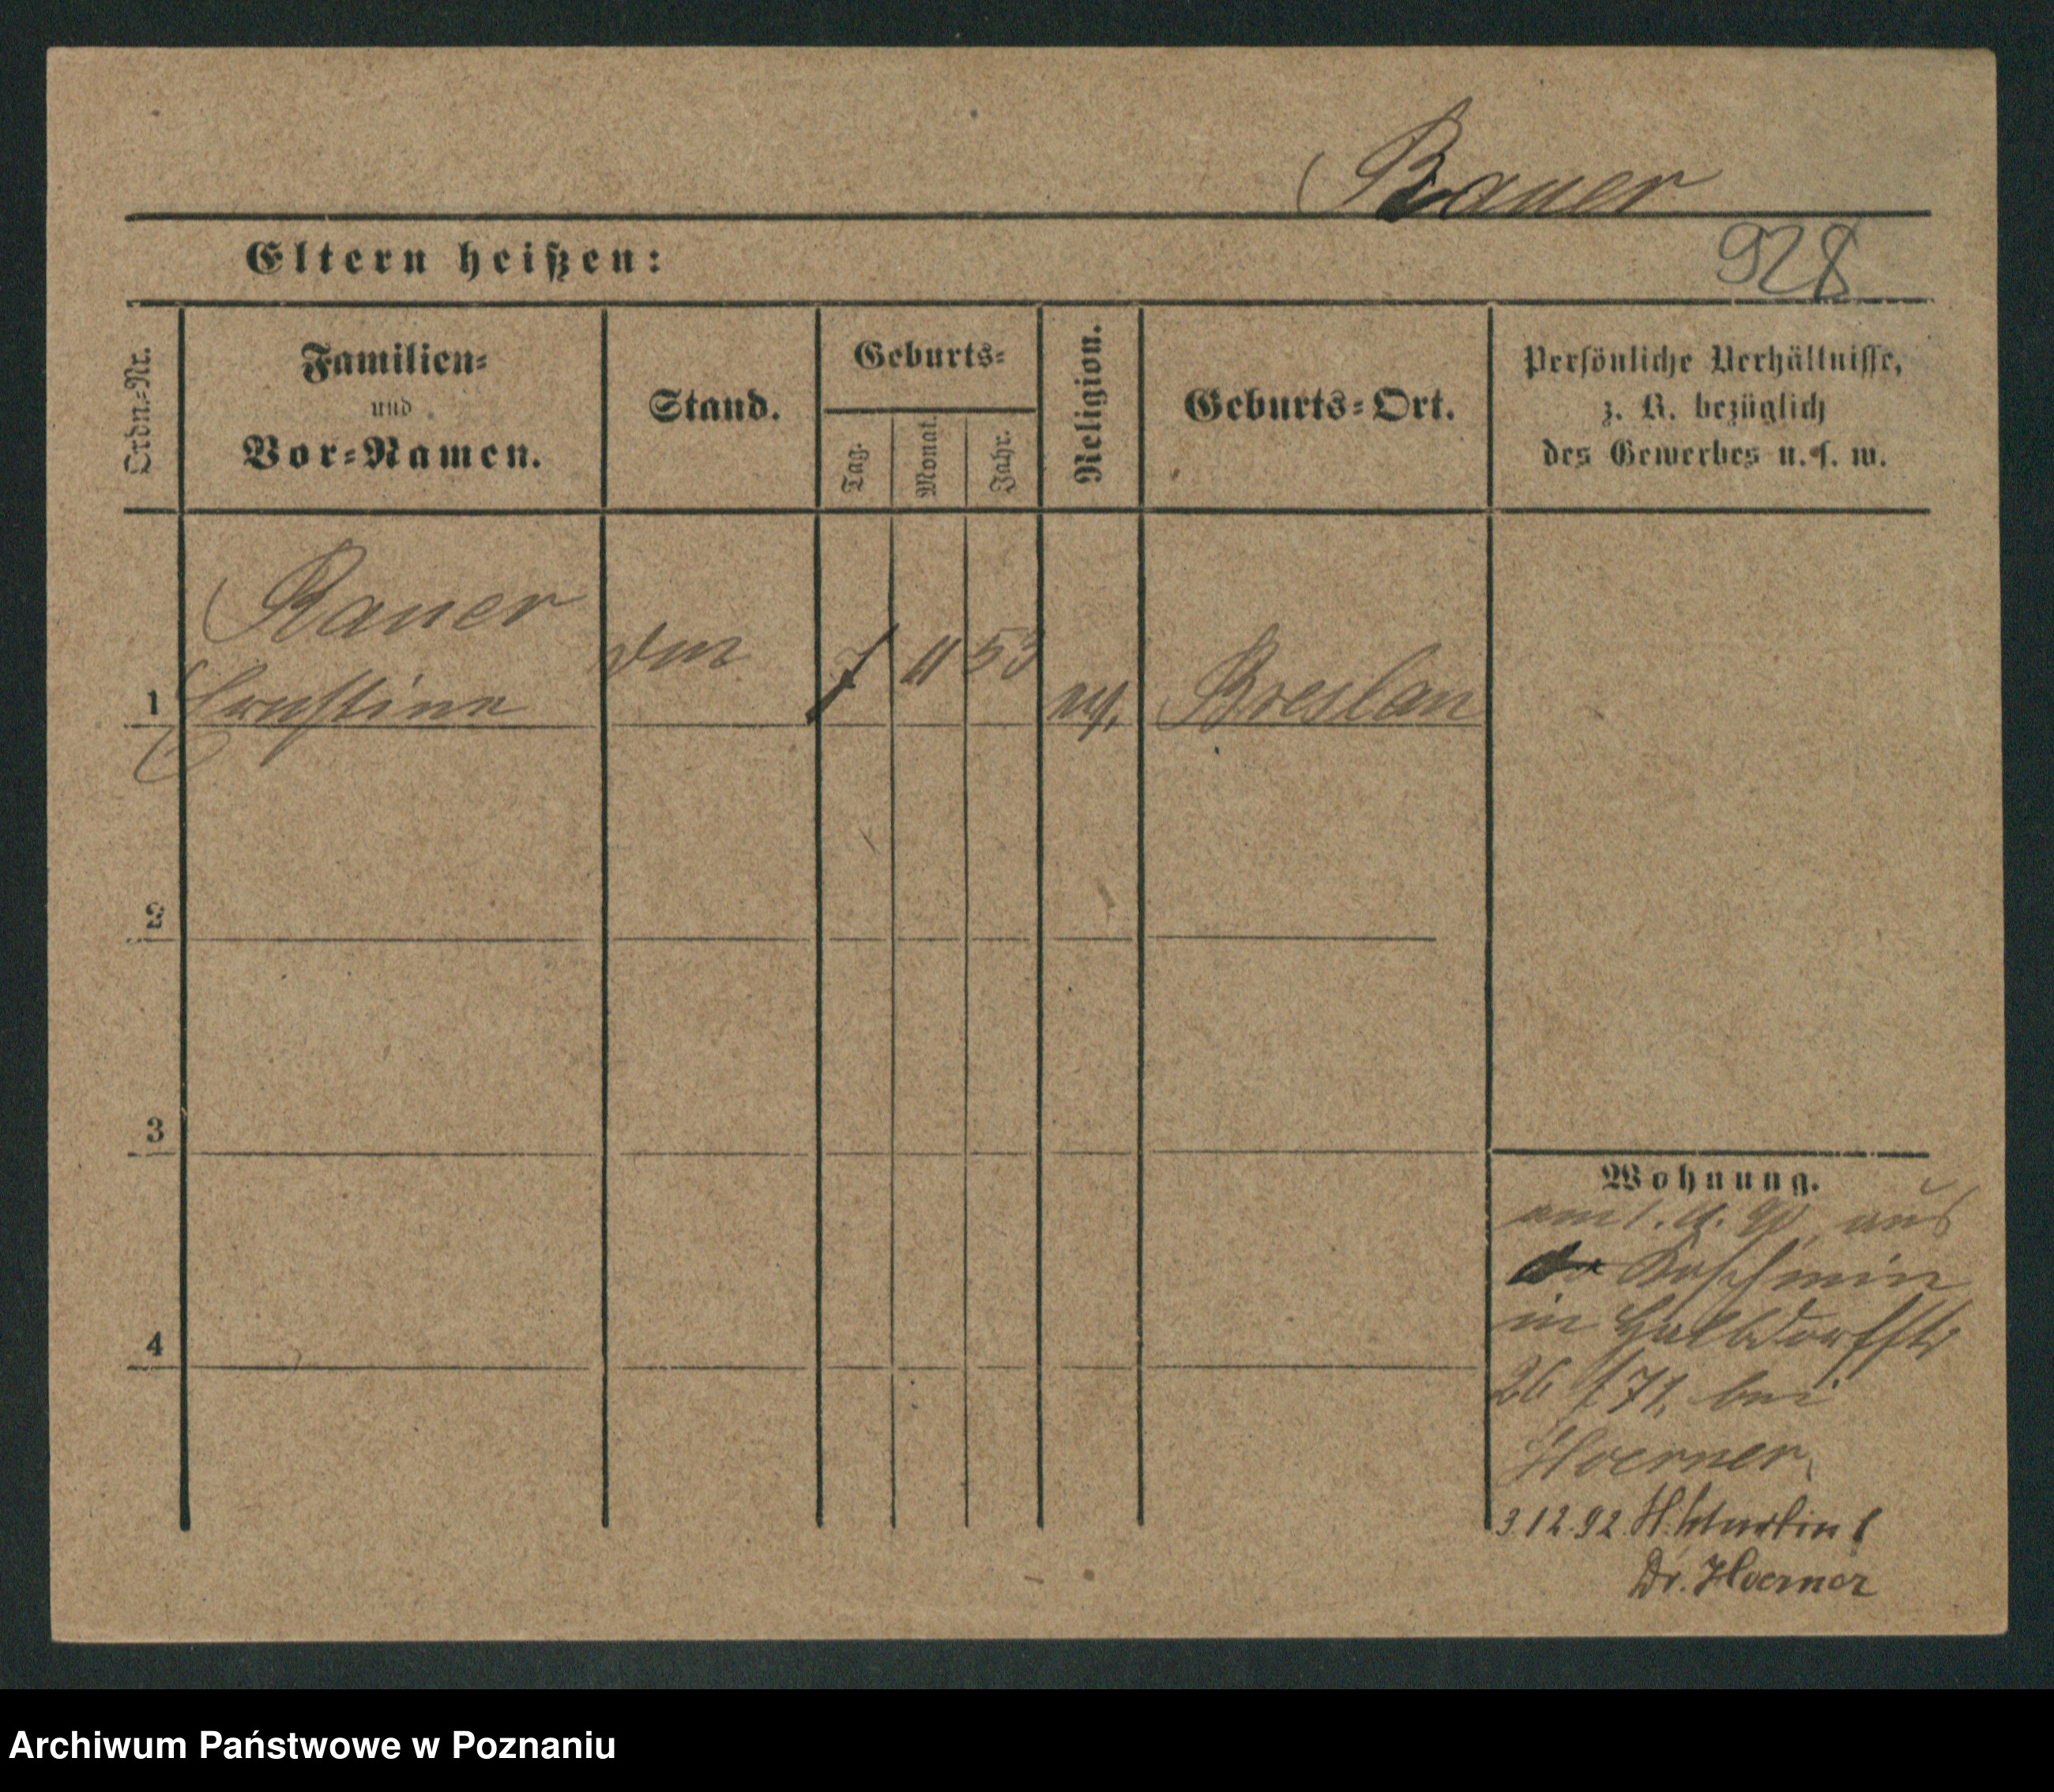 Bauer
Eltern heißen:
928
Ordn.-Nr.
Familien-
und
Vor-Namen.
Stand.
Geburts-
Tag.
Monat.
Jahr.
Religion.
Geburts-Ort.
Persönliche Verhältnisse,
z. B. bezüglich
des Gewerbes u. s. w.
Bauer
1 Ernstine 7 11 53 Breslau
2
3
4
Wohnung.
am 1. 90, aus
Koschmin
in Halbdorfstr
26 bei
Hoerner,
3.12.92.
Dr. Hoerner
Archiwum Państwowe w Poznaniu